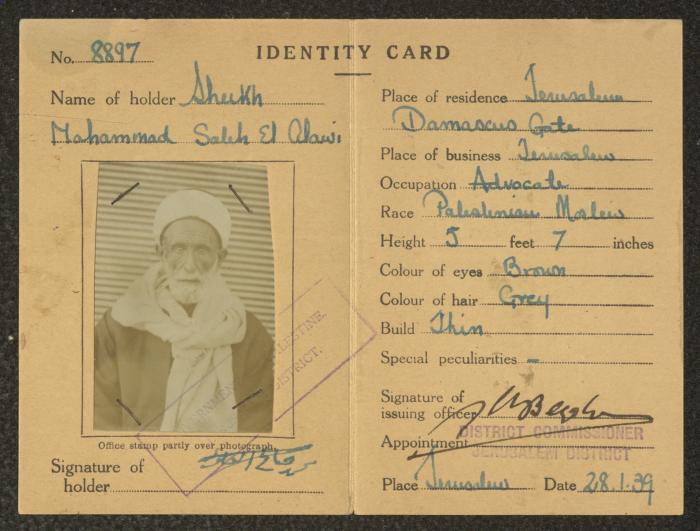 No. 8897
IDENTITY CARD
Name of holder Sheikh
Mohammad Saleh El Alawi
Office stamp partly over photograph.
Signature of
holder
PALESTINE.
DISTRICT.
Place of residence Jerusalem
Damascus Gate
Place of business Jerusalem
Occupation Advocate
Race Palestinian Moslem
Height 5 feet 7 inches
Colour of eyes Brown
Colour of hair Grey
Build Thin
Special peculiarities -
Signature of
issuing officer
Appointment DISTRICT COMMISSIONER
JERUSALEM DISTRICT
Place Jerusalem Date 28.1.39